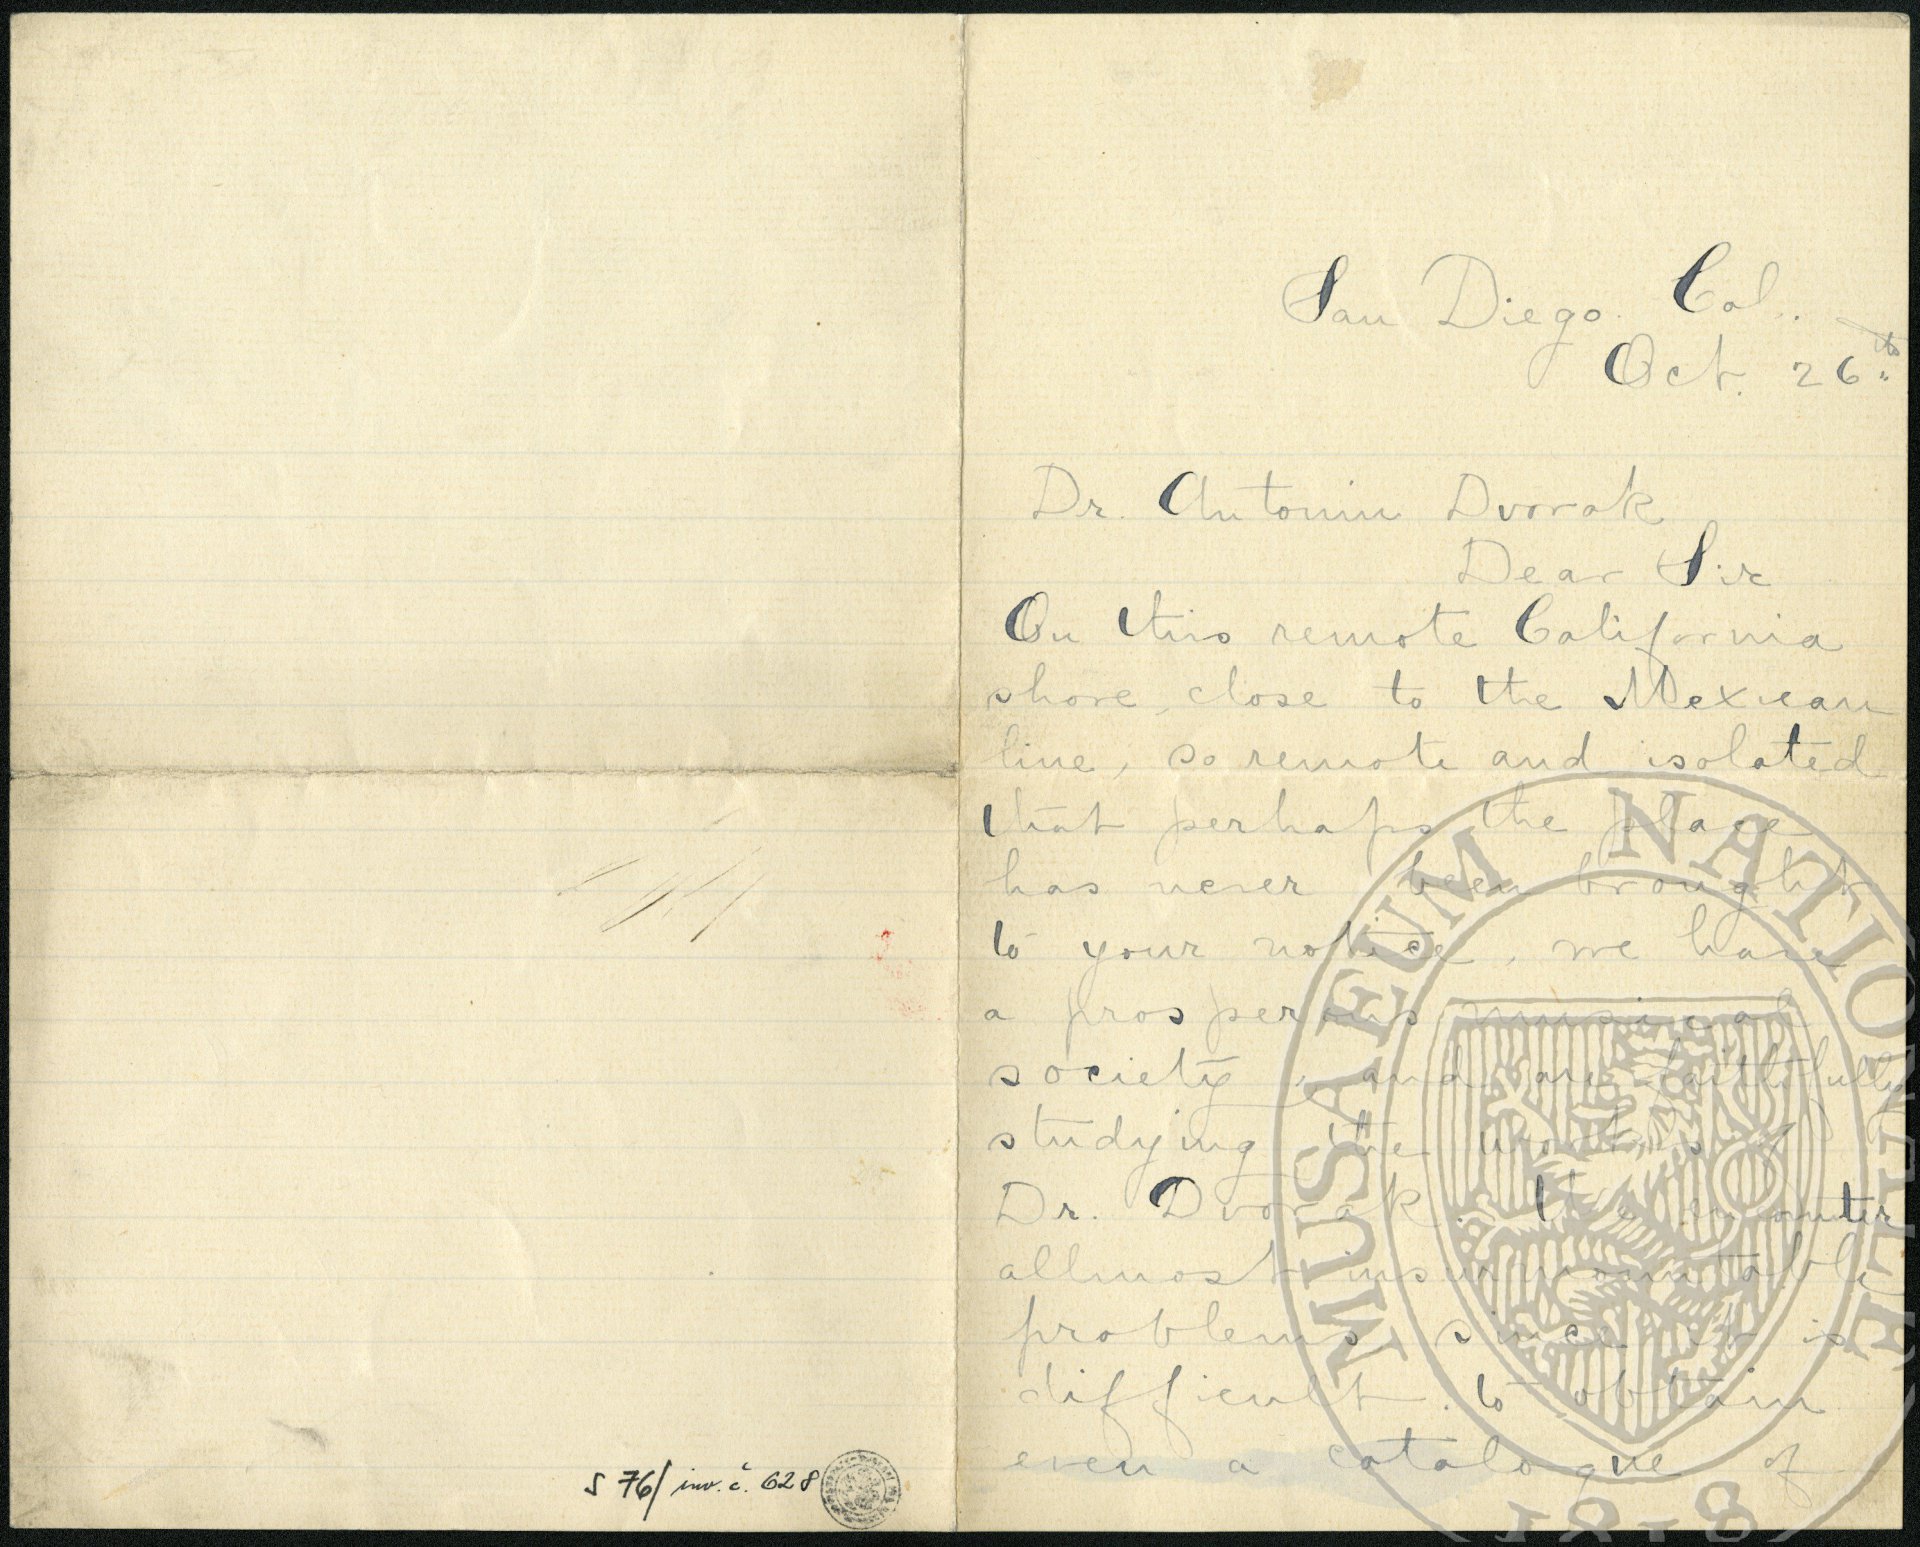 San Diego. Cal..
Oct. 26th
Dr. Antonin Dvorak
Dear Sir
On this remote California
shore, close to the Mexican
line, so remote and isolated
that perhaps the place
has never been brought
to your notice, we have
a prosperous musical
society, and are faithfully
studying the works of
Dr. Dvorak. We encounter
allmost insurmountable
problems since it is
difficult to obtain
even a catalogue of
S 76/ inv. č. 628
MUSAEUM NATIONALE
1818